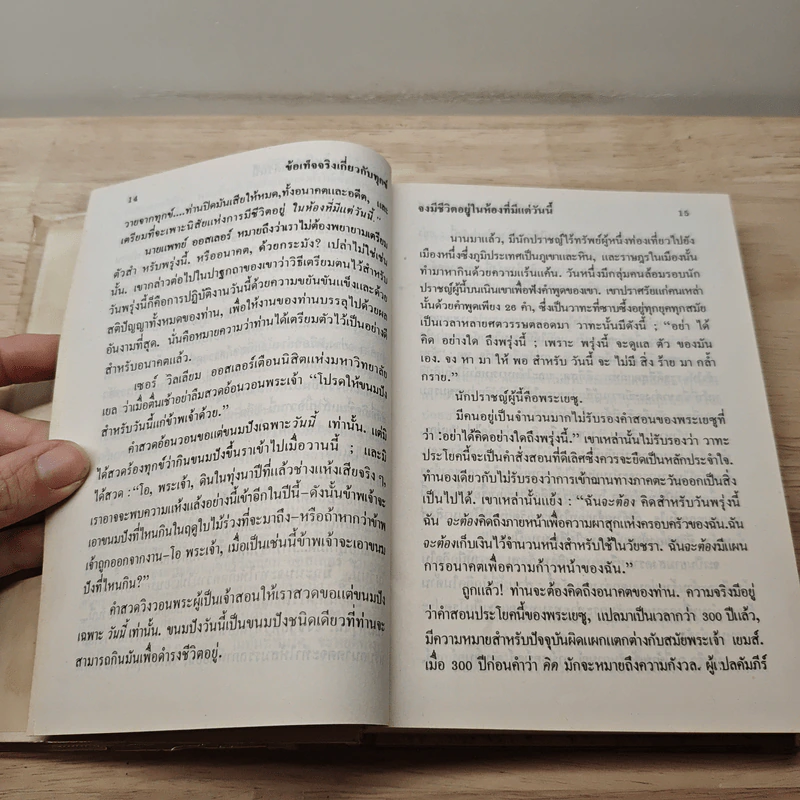 14
ข้อเท็จจริงเกี่ยวกับทุกข์
วายจากทุกข์....ท่านปิดมันเสียให้หมด,ทั้งอนาคตและอดีต, และ
เตรียมที่จะเพาะนิสัยแห่งการมีชีวิตอยู่ ในห้องที่มีแต่วันนี้."
นายแพทย์ ออสเลอร์ หมายถึงว่าเราไม่ต้องพยายามเตรียม
ตัวสำหรับพรุ่งนี้. หรืออนาคต, ด้วยกระมัง? เปล่าไม่ใช่เช่น
นั้น. เขากล่าวต่อไปในปาฐกถาของเขาว่าวิธีเตรียมตนไว้สำหรับ
วันพรุ่งนี้ก็คือการปฏิบัติงานวันนี้ด้วยความขยันขันแข็งและด้วย
สติปัญญาทั้งหมดของท่าน, เพื่อให้งานของท่านบรรลุไปด้วยผล
อันงามที่สุด. นั่นคือหมายความว่าท่านได้เตรียมตัวไว้เป็นอย่างดี
สำหรับอนาคตแล้ว.
เซอร์ วิลเลียม ออสเลอร์เตือนนิสิตแห่งมหาวิทยาลัย
เยล ว่าเมื่อตื่นเช้าอย่าลืมสวดอ้อนวอนพระเจ้า "โปรดให้ขนมปัง
สำหรับวันนี้แก่ข้าพเจ้าด้วย."
คำสวดอ้อนวอนขอแต่ขนมปังเฉพาะวันนี้ เท่านั้น. แต่มิ
ได้สวดร้องทุกข์ว่ากินขนมปังขึ้นราเข้าไปเมื่อวานนี้ ; และมิ
ได้สวด :"โอ, พระเจ้า, ดินในทุ่งนาปีที่แล้วช่างแห้งเสียจริง ๆ
เราอาจจะพบความแห้งแล้งอย่างนี้เข้าอีกในปีนี้–ดังนั้นข้าพเจ้าจะ
เอาขนมปังที่ไหนกินในฤดูใบไม้ร่วงที่จะมาถึง–หรือถ้าหากว่าข้าพ
เจ้าถูกออกจากงาน–โอ พระเจ้า, เมื่อเป็นเช่นนี้ข้าพเจ้าจะเอาขนม
ปังที่ไหนกิน?"
คำสวดวิงวอนพระผู้เป็นเจ้าสอนให้เราสวดขอแต่ขนมปัง
เฉพาะ วันนี้ เท่านั้น. ขนมปังวันนี้เป็นขนมปังชนิดเดียวที่ท่านจะ
สามารถกินมันเพื่อดำรงชีวิตอยู่.
จงมีชีวิตอยู่ในห้องที่มีแต่วันนี้
15
นานมาแล้ว, มีนักปราชญ์ไร้ทรัพย์ผู้หนึ่งท่องเที่ยวไปยัง
เมืองหนึ่งซึ่งภูมิประเทศเป็นภูเขาและหิน, และราษฎรในเมืองนั้น
ทำมาหากินด้วยความแร้นแค้น. วันหนึ่งมีกลุ่มคนล้อมรอบนัก
ปราชญ์ผู้นี้บนเนินเขาเพื่อฟังคำพูดของเขา. เขาปราศรัยแก่คนเหล่า
นั้นด้วยคำพูดเพียง 26 คำ, ซึ่งเป็นวาทะที่ซาบซึ้งอยู่ทุกยุคทุกสมัย
เป็นเวลาหลายศตวรรษตลอดมา วาทะนั้นมีดังนี้ ; "อย่า ได้
คิด อย่างใด ถึงพรุ่งนี้ ; เพราะ พรุ่งนี้ จะดูแล ตัว ของมัน
เอง. จง หา มา ให้ พอ สำหรับ วันนี้ จะ ไม่มี สิ่ง ร้าย มา กล้ำ
กราย."
นักปราชญ์ผู้นี้คือพระเยซู.
มีคนอยู่เป็นจำนวนมากไม่รับรองคำสอนของพระเยซูที่
ว่า :อย่าได้คิดอย่างใดถึงพรุ่งนี้." เขาเหล่านั้นไม่รับรองว่า วาทะ
ประโยคนี้จะเป็นคำสั่งสอนที่ดีเลิศซึ่งควรจะยึดเป็นหลักประจำใจ.
ทำนองเดียวกับไม่รับรองว่าการเข้าฌานทางภาคตะวันออกเป็นสิ่ง
เป็นไปได้. เขาเหล่านั้นแย้ง : "ฉันจะต้อง คิดสำหรับวันพรุ่งนี้
ฉัน จะต้องคิดถึงภายหน้าเพื่อความผาสุกแห่งครอบครัวของฉัน.ฉัน
จะต้องเก็บเงินไว้จำนวนหนึ่งสำหรับใช้ในวัยชรา. ฉันจะต้องมีแผน
การอนาคตเพื่อความก้าวหน้าของฉัน."
ถูกแล้ว! ท่านจะต้องคิดถึงอนาคตของท่าน. ความจริงมีอยู่
ว่าคำสอนประโยคนี้ของพระเยซู, แปลมาเป็นเวลากว่า 300 ปีแล้ว,
มีความหมายสำหรับปัจจุบันผิดแผกแตกต่างกับสมัยพระเจ้า เยมส์.
เมื่อ 300 ปีก่อนคำว่า คิด มักจะหมายถึงความกังวล. ผู้แปลคัมภีร์